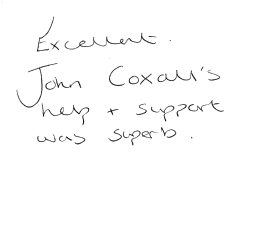 Excellent.
John Coxall's
help + support
was superb.